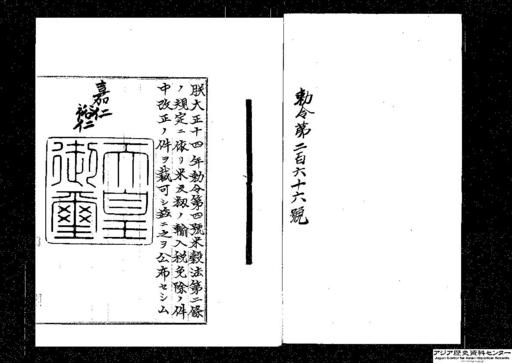 勅令第二百六十六號
朕大正十四年勅令第四號米穀法第二條
ノ規定ニ依リ米及籾ノ輸入税免除ノ件
中改正ノ件ヲ裁可シ茲ニ之ヲ公布セシム
嘉仁
裕仁
天皇
御璽
アジア歴史資料センター
Japan Center for Asian Historical Records